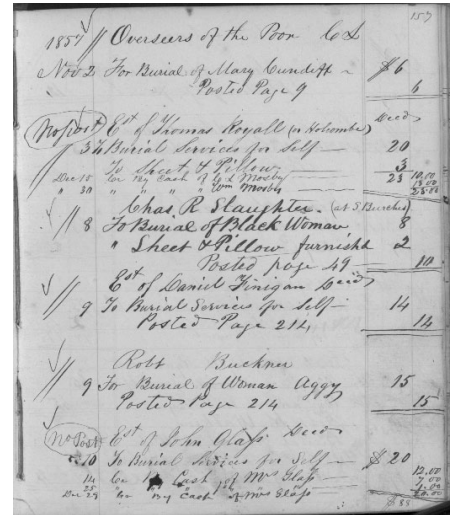 157
1857 // Overseers of the Poor
Nov 2 For Burial of Mary Cundiff $6
Posted Page 9 6
No Post Est of Thomas Royall (or Holcombe) Decd
3 To Burial Services for Self 20
To Sheet & Pillow 3
Dec 15 Cr By Cash of Mosby 23 10.00
" 30 " " " " Wm Mosby 13.00
23.00
// Chas R. Slaughter (at S Burches)
8 To Burial of Black Woman 8
" Sheet & Pillow furnisht 2
Posted page 49 10
// Est of Daniel Finigan Decd
9 To Burial Services for Self 14
Posted Page 214 14
Robt Buckner
// 9 For Burial of Woman Aggy 15
Posted Page 214 15
No Post Est of John Glass Decd
10 To Burial Services for Self $20
14 Cr By Cash of Mrs Glass 12.00
25 7.00
Dec 29 " Cr By Cash of Mrs Glass 1.00
20.00